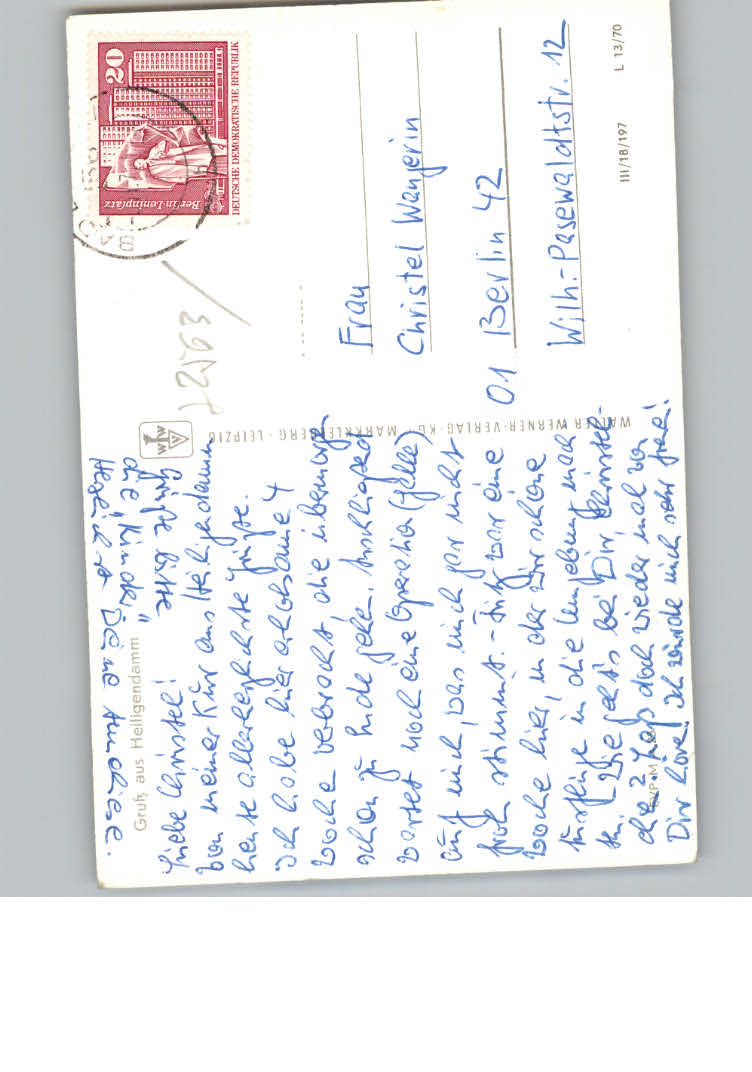 Gruß aus Heiligendamm
Liebe Christel!
Von meiner Kur aus Heiligendamm
heute allerherzlichste Grüße.
Ich habe hier erholsame 4
Wochen verbracht, die übermorgen
schon zu Ende gehen. Anschließend
wartet noch eine Operation (Galle)
auf mich, was mich gar nicht
froh stimmt. - Fritz war eine
Woche hier, in der wir schöne
Ausflüge in die Umgebung mach-
ten. Wie geht's bei Dir Christel-
che? Laß doch wieder mal von
Dir hören. Ich würde mich sehr freu'n!
Grüße bitte
die "Kinder"
Herzlichst Deine Anneliese.
EVP M
WALTER WERNER-VERLAG-KG · MARKKLEEBERG-LEIPZIG
WVW
72563
20
DEUTSCHE DEMOKRATISCHE REPUBLIK
Berlin-Leninplatz
BAD
Frau
Christel Wangerin
01 Berlin 42
Wilh.-Pasewaldtstr. 12
III/18/197 L 13/70